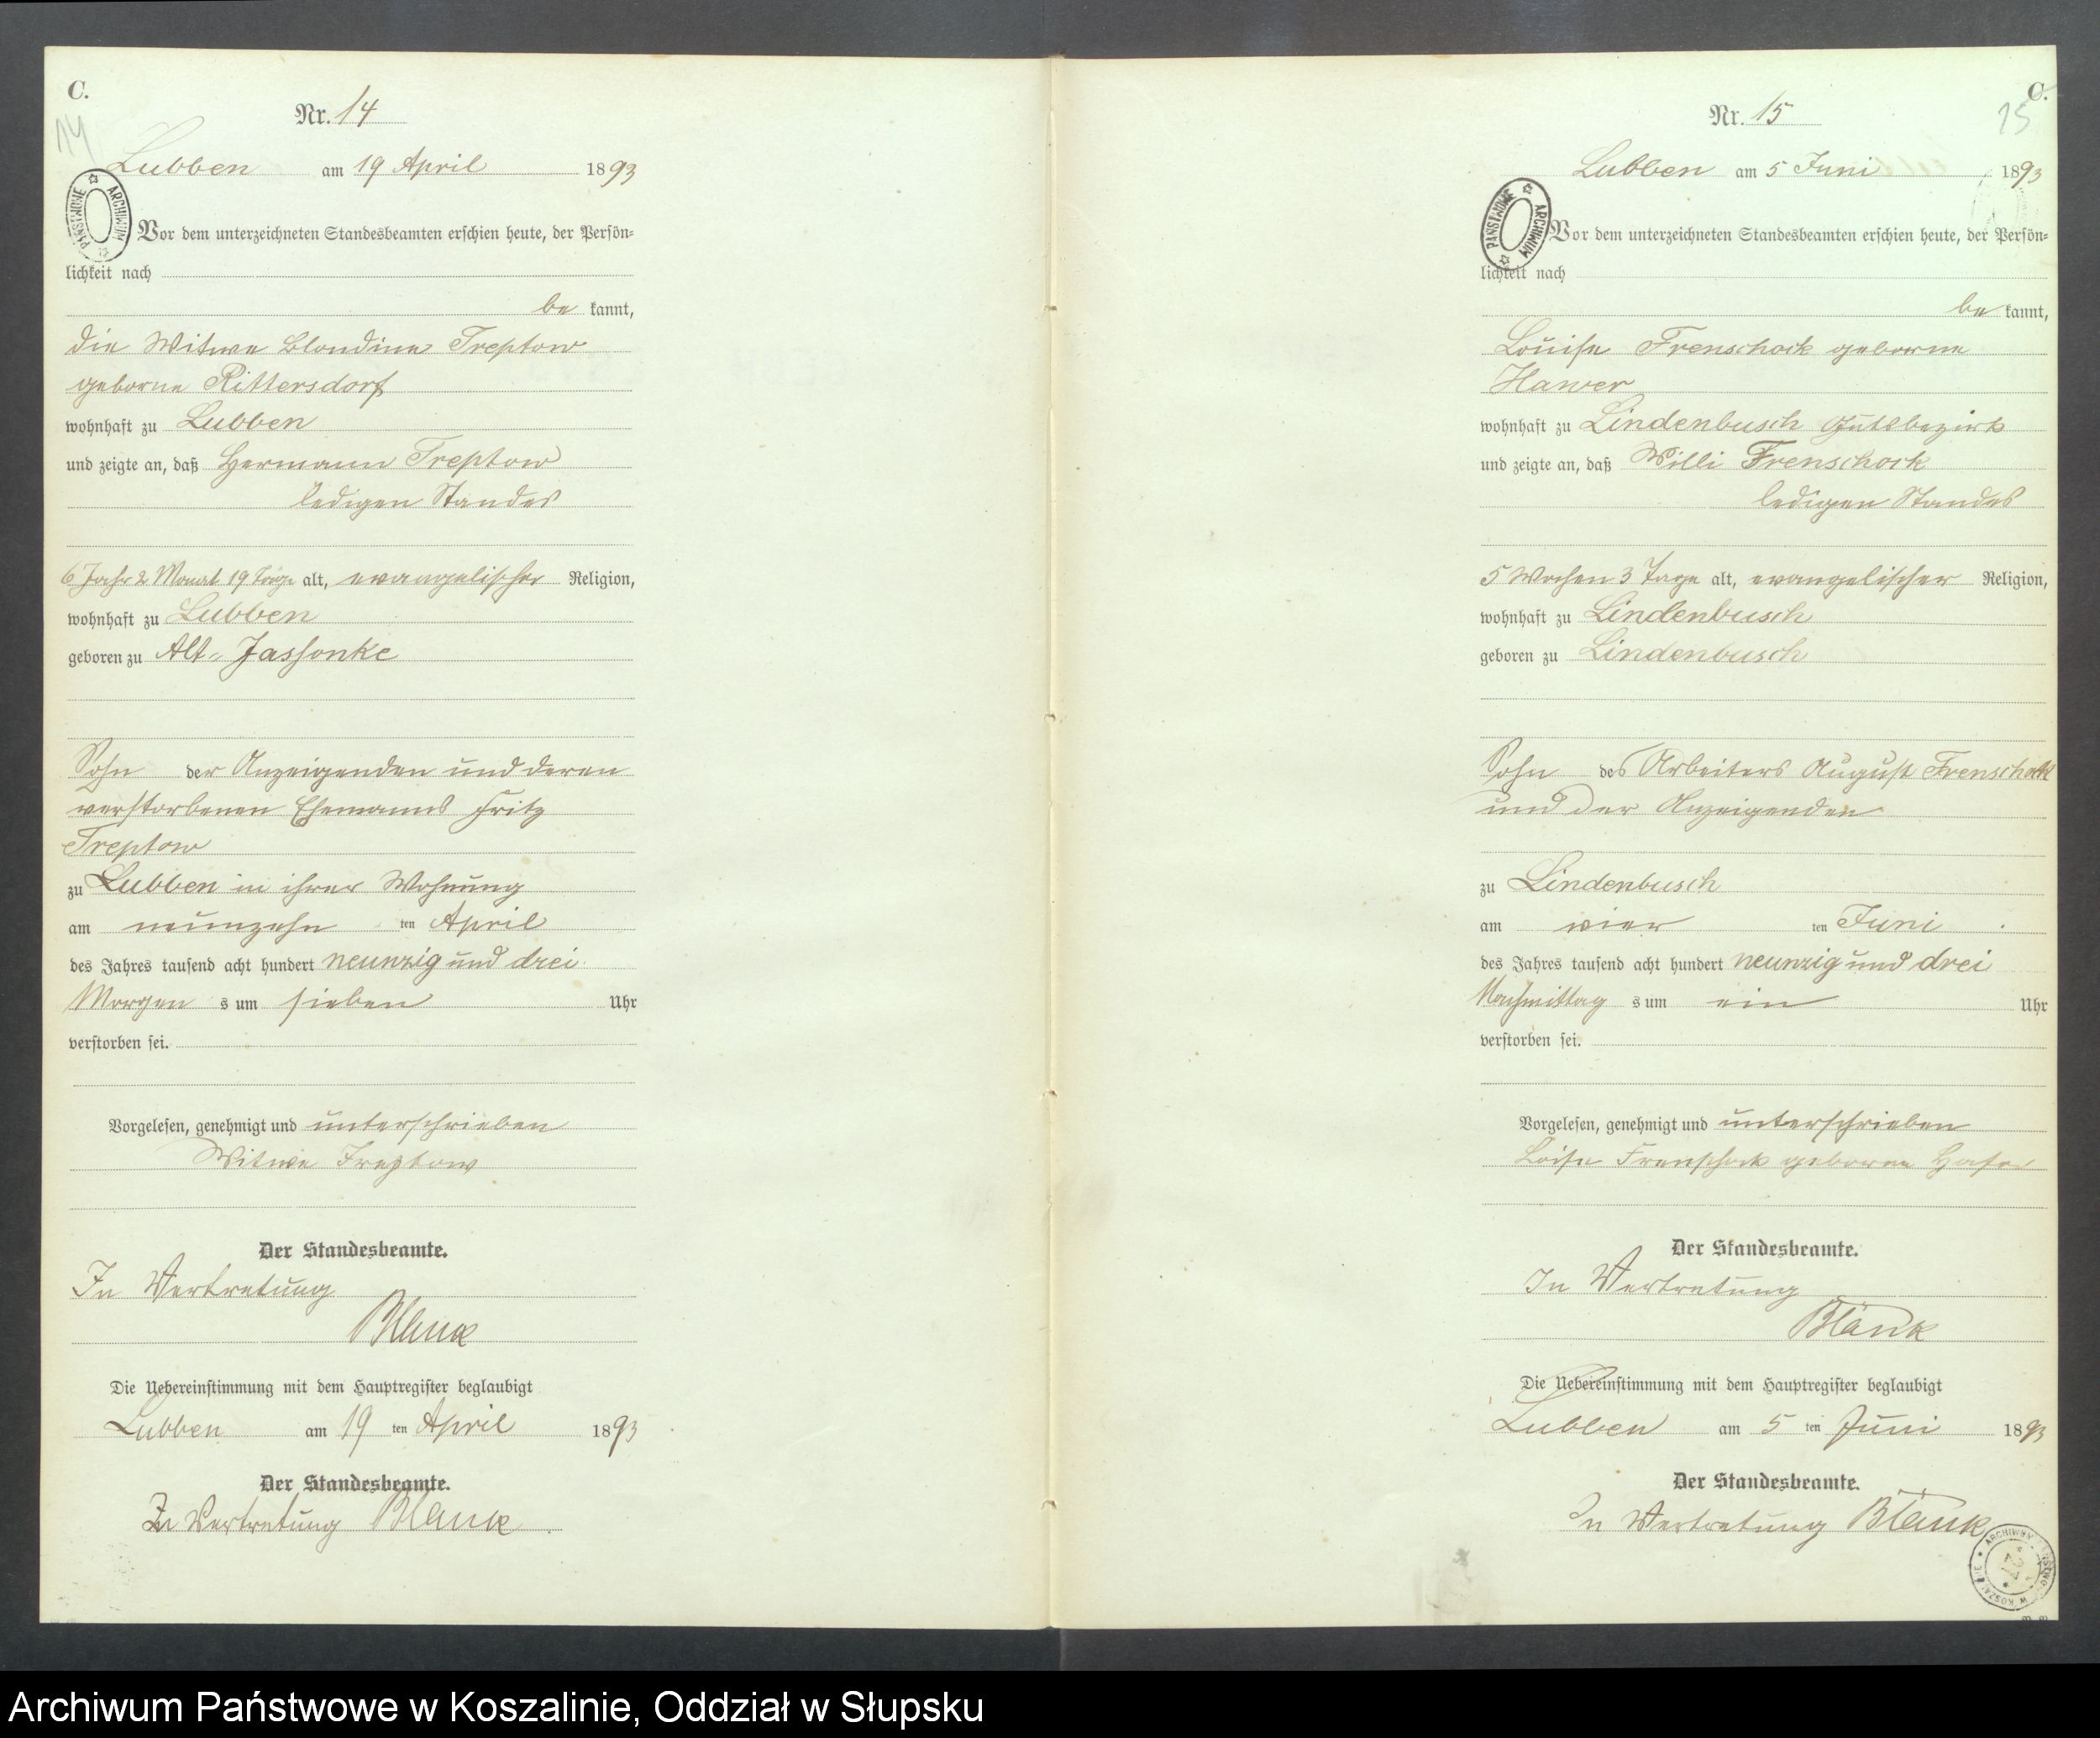 C.
14
Nr. 14
Lubben am 19 April 1893
ARCHIWUM PAŃSTWOWE
Vor dem unterzeichneten Standesbeamten erschien heute, der Persön-
lichkeit nach
be kannt,
die Witwe Blondine Treptow
geborne Rittersdorf
wohnhaft zu Lubben
und zeigte an, daß Hermann Treptow
ledigen Standes
6 Jahr 2 Monat 19 Tage alt, evangelischer Religion,
wohnhaft zu Lubben
geboren zu Alt-Jassonke
Sohn der Anzeigenden und deren
verstorbenen Ehemanns Fritz
Treptow
zu Lubben in ihrer Wohnung
am neunzehn ten April
des Jahres tausend acht hundert neunzig und drei
Morgen s um sieben Uhr
verstorben sei.
Vorgelesen, genehmigt und unterschrieben
Witwe Treptow
Der Standesbeamte.
In Vertretung
Blank
Die Uebereinstimmung mit dem Hauptregister beglaubigt
Lubben am 19 ten April 1893
Der Standesbeamte.
In Vertretung Blank
C.
15
Nr. 15
Lubben am 5 Juni 1893
ARCHIWUM PAŃSTWOWE
Vor dem unterzeichneten Standesbeamten erschien heute, der Persön-
lichkeit nach
be kannt,
Louise Frenschock geborne
Hawer
wohnhaft zu Lindenbusch Gutsbezirk
und zeigte an, daß Willi Frenschock
ledigen Standes
5 Wochen 3 Tage alt, evangelischer Religion,
wohnhaft zu Lindenbusch
geboren zu Lindenbusch
Sohn des Arbeiters August Frenschock
und der Anzeigenden
zu Lindenbusch
am vier ten Juni
des Jahres tausend acht hundert neunzig und drei
Nachmittag s um ein Uhr
verstorben sei.
Vorgelesen, genehmigt und unterschrieben
Loise Frenschock geborne
Der Standesbeamte.
In Vertretung
Blank
Die Uebereinstimmung mit dem Hauptregister beglaubigt
Lubben am 5 ten Juni 1893
Der Standesbeamte.
In Vertretung Blank
Archiwum Państwowe w Koszalinie, Oddział w Słupsku